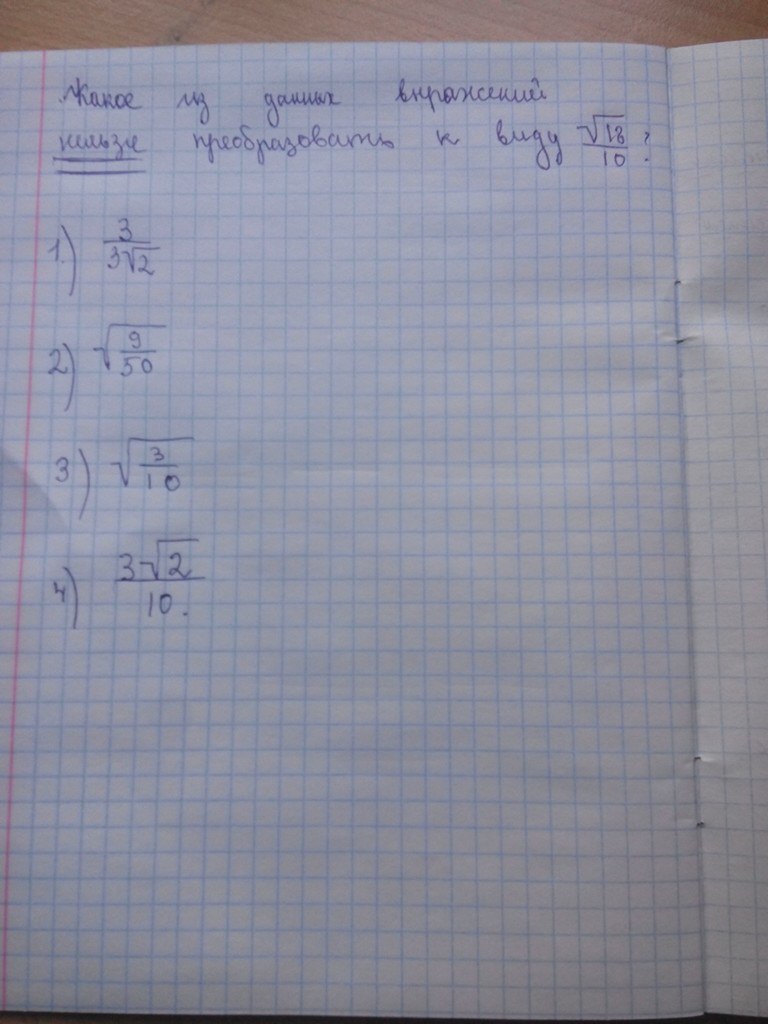 Какое из данных выражений
нельзя преобразовать к виду √18/10?
1.) 3/3√2
2) √9/50
3) √3/10
4) 3√2/10.